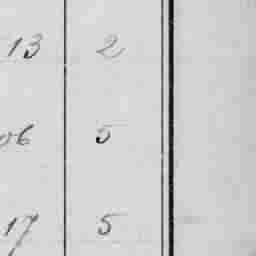 13 2
06 5
17 5